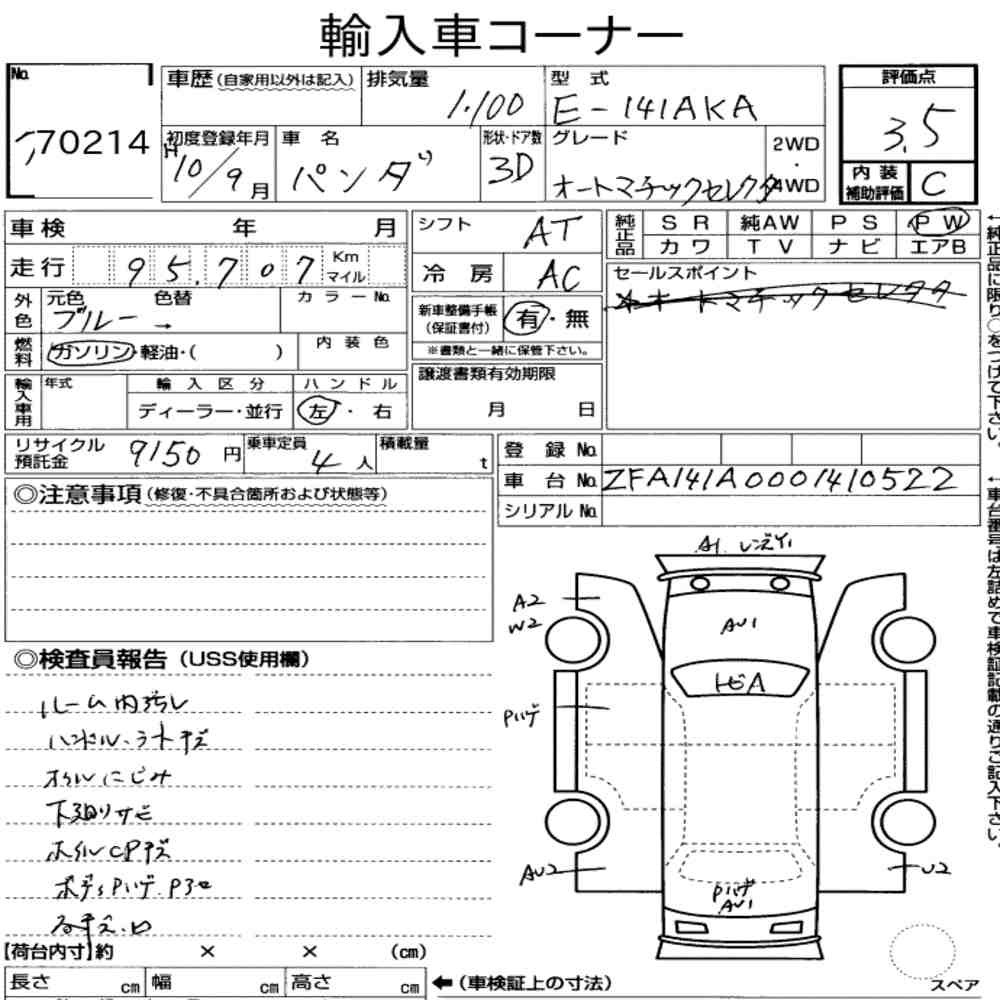 輸入車コーナー
No. 70214
車歴 (自家用以外は記入)
排気量 1.100
型式 E-141AKA
評価点 3.5
初度登録年月 H10/9月
車名 パンダ
形状・ドア数 3D
グレード オートマチックセレクタ
2WD・4WD
内装補助評価 C
車検 年 月
シフト AT
純正品 SR 純AW PS PW
カワ TV ナビ エアB
走行 95,707 Km マイル
冷房 AC
セールスポイント
オートマチックセレクタ
外色 元色 ブルー 色替 → カラーNo.
新車整備手帳 (保証書付) 有・無
※書類と一緒に保管下さい。
燃料 ガソリン・軽油・( ) 内装色
譲渡書類有効期限
月 日
輸入車用 年式 輸入区分 ハンドル
ディーラー・並行 左・右
リサイクル預託金 9150円
乗車定員 4人
積載量 t
登録No.
車台No. ZFA141A0001410522
シリアルNo.
◎注意事項 (修復・不具合箇所および状態等)
◎検査員報告 (USS使用欄)
ルーム内汚レ
ハンドル・ラトキズ
オイルにじみ
下廻りサビ
ホイルCPキズ
A1
A2
W2
AU1
トビA
Pハゲ
AU2
U2
Pハゲ
AU1
【荷台内寸】約 × × (cm)
長さ cm 幅 cm 高さ cm
←(車検証上の寸法)
スペア
←純正品に限り○をつけて下さい。
←車台番号は左詰めで車検証記載の通りご記入下さい。